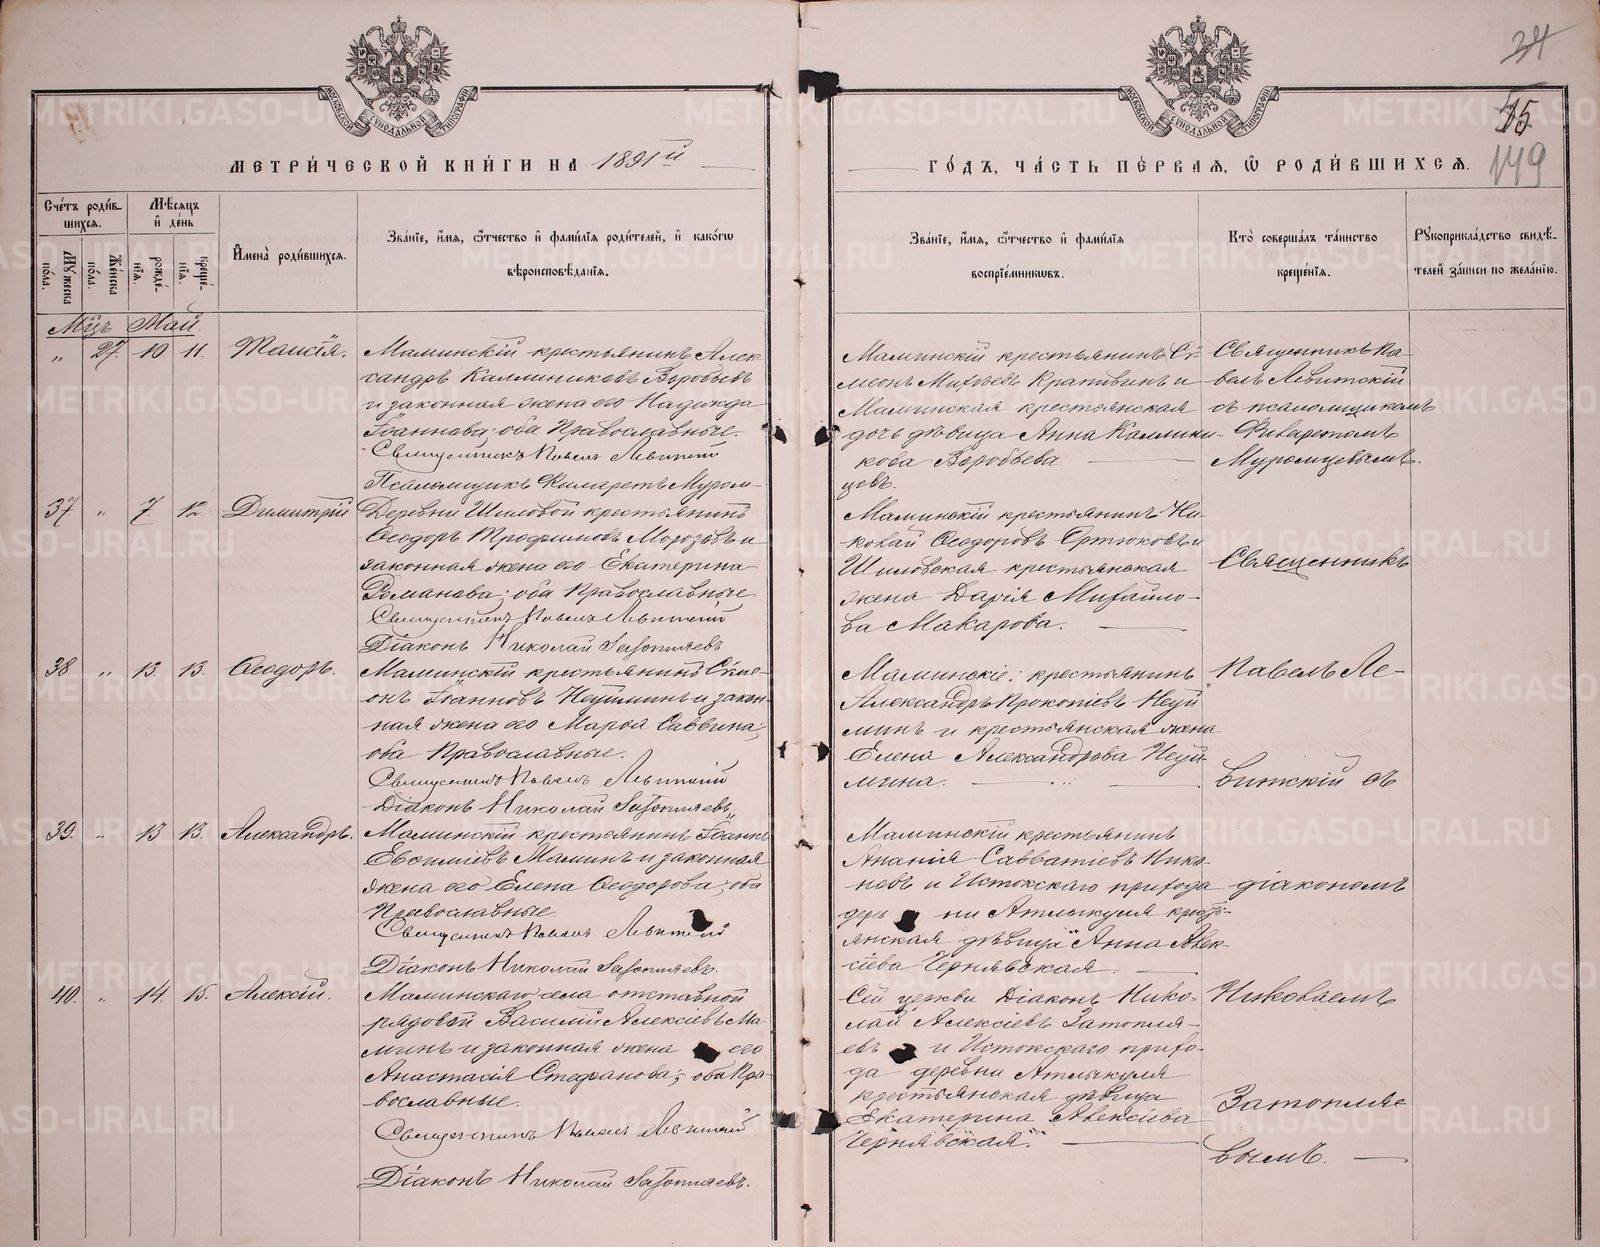 34
15
149
МЕТРИ́ЧЕСКОЙ КНИ́ГИ НА 1891й
ГО́ДЪ, ЧА́СТЬ ПЕ́РВАЯ, Ѡ РОДИ́ВШИХСЯ.
МОСКОВСКОЙ СѴНОДАЛЬНОЙ ТИПОГРАФІИ
МОСКОВСКОЙ СѴНОДАЛЬНОЙ ТИПОГРАФІИ
Сче́тъ роди́в-
шихся.
Мѣ́сяцъ
и҆ де́нь
Му́жеска
по́ла.
Же́нска
по́ла.
рожде́-
нїя.
креще́-
нїя.
И҆мена̀ роди́вшихся.
Зва́нїе, и҆́мя, ѻ҆́тчество и҆ фами́лїя роди́телей, и҆ како́гѡ
вѣроисповѣ́данїя.
Зва́нїе, и҆́мя, ѻ҆́тчество и҆ фами́лїя
воспрїе́мникѡвъ.
Кто̀ соверша́лъ та́инство
креще́нїя.
Рꙋкоприкла́дство свидѣ́-
телей за́писи по жела́нїю.
Мцъ Май.
„ 27. 10 11. Таисія.
Маминскій крестьянинъ Алек-
сандръ Каллиниковъ Воробьевъ
и законная жена его Надежда
Іоаннова; оба Православные.
Священникъ Павелъ Левитскій
Псаломщикъ Филаретъ Муром-
цевъ.
Маминскій крестьянинъ Сі-
меонъ Матѳѣевъ Крапивинъ и
Маминская крестьянская
дочь дѣвица Анна Каллини-
кова Воробьева
Священникъ Па-
велъ Левитскій
съ псаломщикомъ
Филаретомъ
Муромцевымъ.
37 „ 7. 12 Димитрій
Деревни Шиловой крестьянинъ
Ѳеодоръ Трофимовъ Морозовъ и
законная жена его Екатерина
Романова; оба Православные
Священникъ Павелъ Левитскій
Діаконъ Николай Затопляевъ
Маминскій крестьянинъ Ни-
колай Ѳеодоровъ Ортюковъ и
Шиловская крестьянская
жена Дарія Михайло-
ва Макарова.
Священникъ
38 „ 13. 13. Ѳеодоръ.
Маминскій крестьянинъ Сіме-
онъ Іоанновъ Неуйминъ и закон-
ная жена его Марѳа Саввина;
оба Православные.
Священникъ Павелъ Левитскій
Діаконъ Николай Затопляевъ
Маминскіе: крестьянинъ
Александръ Прокопіевъ Неуй-
минъ и крестьянская жена
Елена Александрова Неуй-
мина.
Павелъ Ле-
витскій съ
39. „ 13 13. Александръ.
Маминскій крестьянинъ Іоаннъ
Евѳиміевъ Маминъ и законная
жена его Елена Ѳеодорова; оба
Православные.
Священникъ Павелъ Левитскій
Діаконъ Николай Затопляевъ.
Маминскій крестьянинъ
Ананія Савватіевъ Нико-
новъ и Истокскаго прихода
дерев ни Атлыкуля кресть-
янская дѣвица Анна Алек-
сіева Чернявская.
діакономъ
40. „ 14. 15. Алексій.
Маминскаго села отставной
рядовой Василій Алексіевъ Ма-
минъ и законная жена его
Анастасія Стефанова; оба Пра-
вославные.
Священникъ Павелъ Левитскій
Діаконъ Николай Затопляевъ.
Сей церкви Діаконъ Нико-
лай Алексіевъ Затопля-
евъ и Истокскаго прихо-
да деревни Атлыкуля
крестьянская дѣвица
Екатерина Алексіева
Чернявская.
Николаемъ
Затопляе-
вымъ.
METRIKI.GASO-URAL.RU